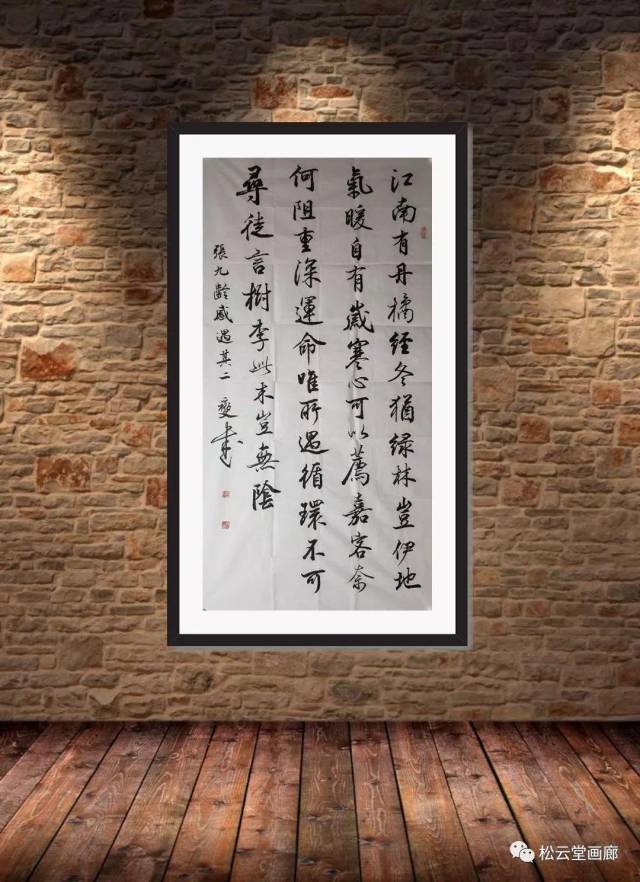 江南有丹橘經冬猶绿林豈伊地
氣暖自有歲寒心可以薦嘉客奈
何阻重深運命唯所遇循環不可
尋徒言樹李此木豈無陰
張九齡感遇其二
松云堂画廊